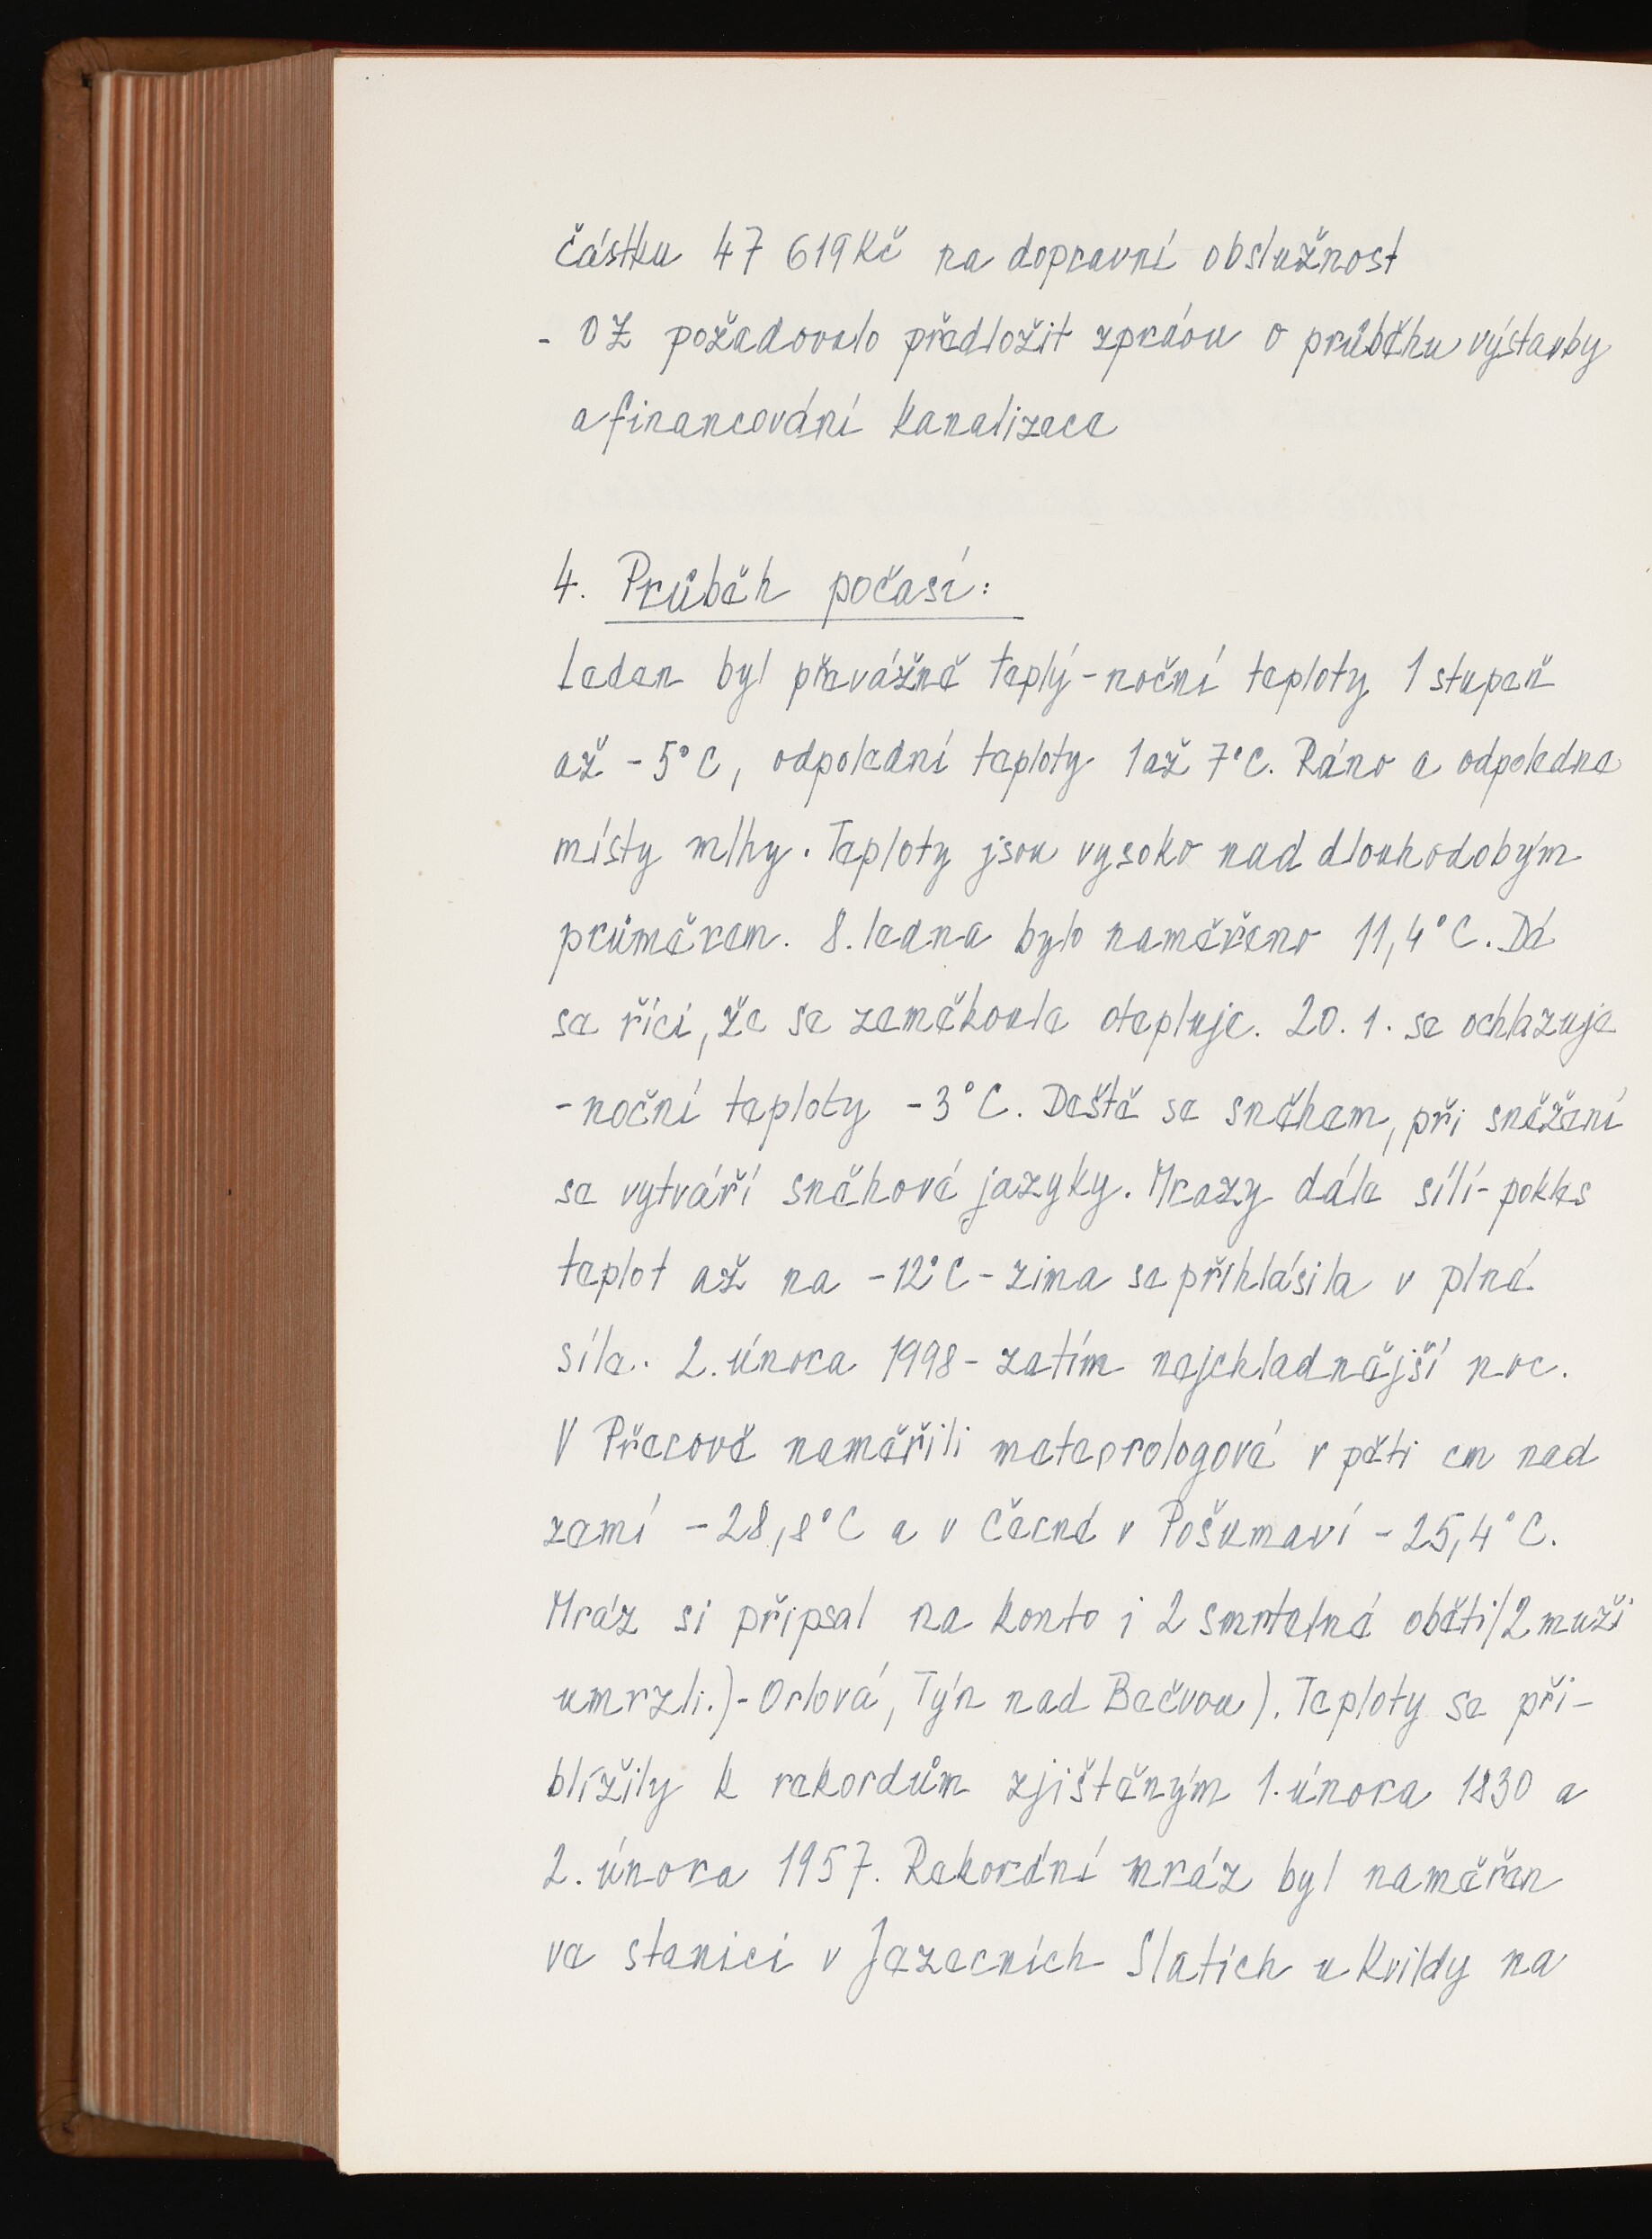 částku 47 619 Kč na dopravní obslužnost
- OZ požadovalo předložit zprávu o průběhu výstavby
a financování kanalizace
4. Průběh počasí:
Leden byl převážně teplý - noční teploty 1 stupeň
až -5°C, odpolední teploty 1 až 7°C. Ráno a odpoledne
místy mlhy. Teploty jsou vysoko nad dlouhodobým
průměrem. 8. ledna bylo naměřeno 11,4°C. Dá
se říci, že se zeměkoule otepluje. 20. 1. se ochlazuje
- noční teploty -3°C. Deště se sněhem, při sněžení
se vytváří sněhové jazyky. Mrazy dále sílí - pokles
teplot až na -12°C - zima se přihlásila v plné
síle. 2. února 1998 - zatím nejchladnější noc.
V Přerově naměřili meteorologové v pěti cm nad
zemí -28,8°C a v Černé v Pošumaví -25,4°C.
Mráz si připsal na konto i 2 smrtelné oběti/2 muži
umrzli.)- Orlová, Týn nad Bečvou). Teploty se při-
blížily k rekordům zjištěným 1. února 1830 a
2. února 1957. Rekordní mráz byl naměřen
ve stanici v Jezerních Slatích u Kvildy na